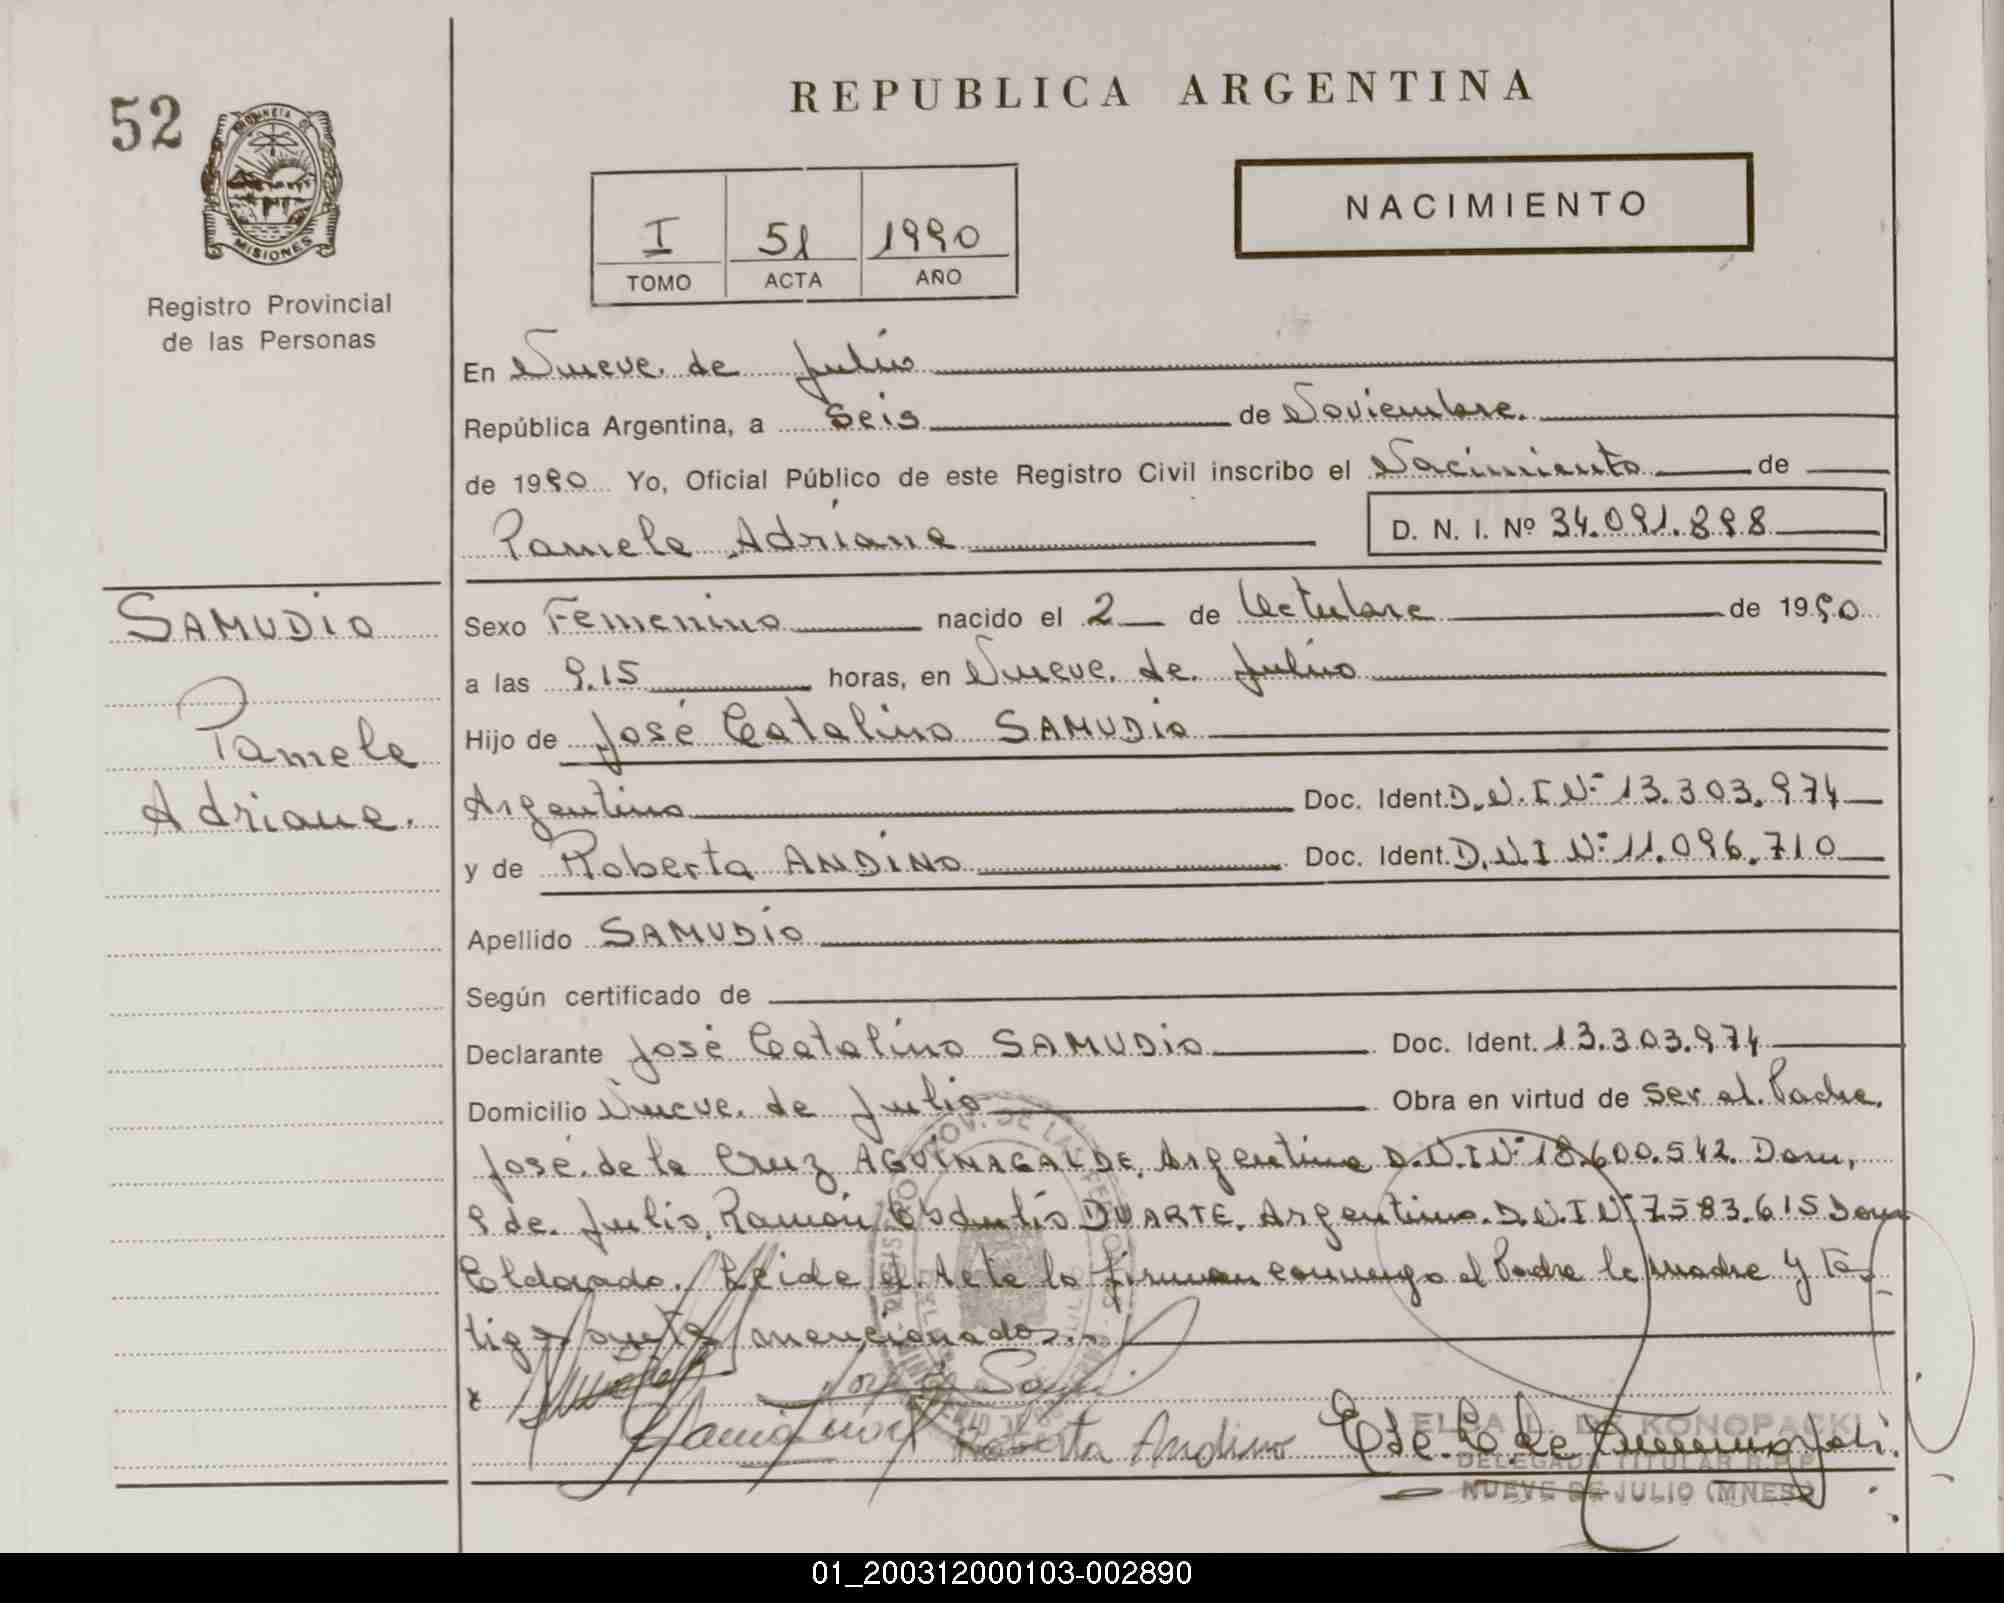 52
PROVINCIA DE
MISIONES
Registro Provincial
de las Personas
REPUBLICA ARGENTINA
NACIMIENTO
I 51 1990
TOMO ACTA AÑO
En Nueve de Julio
República Argentina, a Seis de Noviembre.
de 1990 Yo, Oficial Público de este Registro Civil inscribo el Nacimiento de
Pamela Adriana D. N. I. Nº 34.091.898
SAMUDIO
Pamela
Adriana.
Sexo Femenino nacido el 2 de Octubre de 1990
a las 9.15 horas, en Nueve de Julio
Hijo de José Catalino SAMUDIO
Argentino Doc. Ident. D.N.I Nº 13.303.974
y de Roberta ANDINO Doc. Ident. D.N.I Nº 11.096.710
Apellido SAMUDIO
Según certificado de
Declarante José Catalino SAMUDIO Doc. Ident. 13.303.974
Domicilio Nueve de Julio Obra en virtud de ser el Padre.
José de la Cruz AGUINAGALDE, Argentino D.N.I Nº 18.600.542. Dom,
9 de Julio, Ramón Obdulio DUARTE, Argentino. D.N.I Nº 7583.615 Dom
Eldorado. Leida el Acta la firman conmigo el Padre la madre y tes
tigos mencionados.
Roberta Andino
ELSA L. DE KONOPACKI
DELEGADA TITULAR R.P.P.
NUEVE DE JULIO (MNES)
01_200312000103-002890